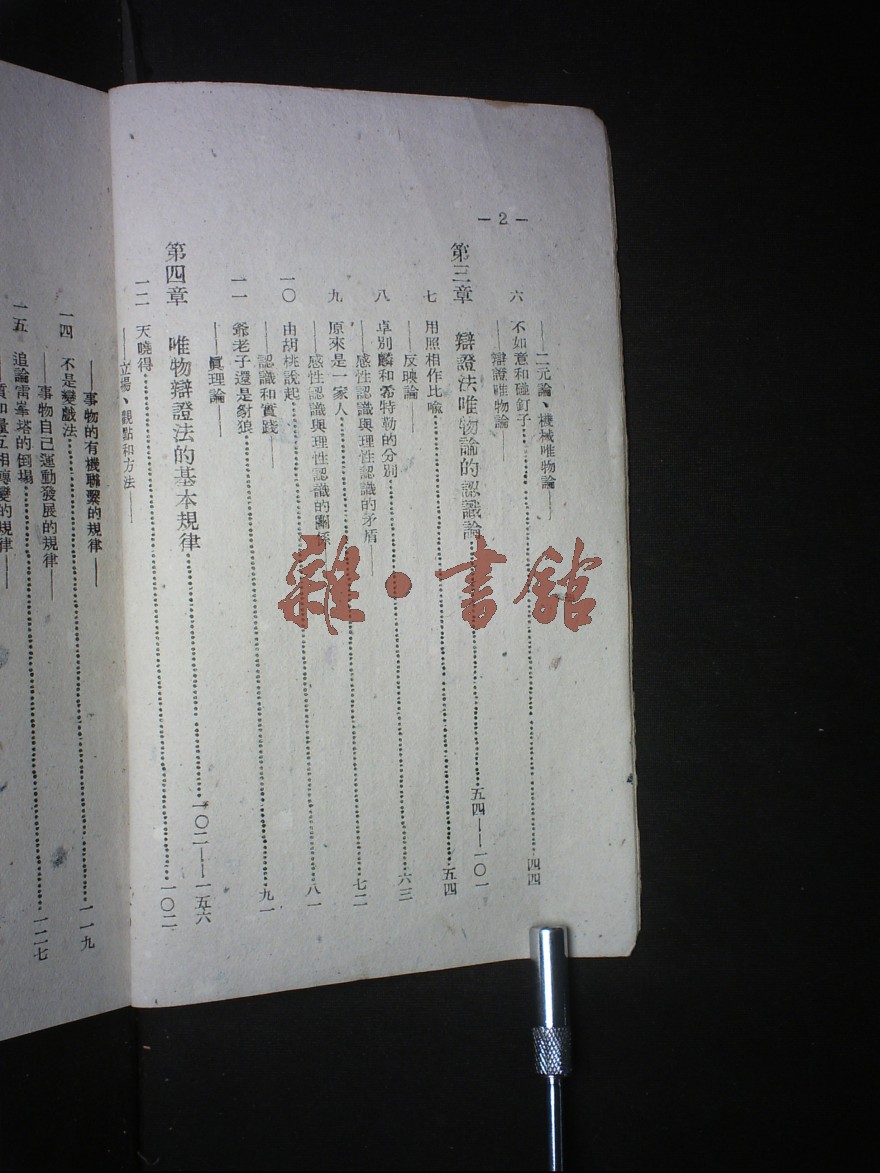 — 2 —
——二元論、機械唯物論——
六 不如意和碰釘子……四四
——辯證唯物論——
第三章 辯證法唯物論的認識論……五四——一〇一
七 用照相作比喩……五四
——反映論——
八 卓別麟和希特勒的分別……六三
——感性認識與理性認識的矛盾——
九 原來是一家人……七二
——感性認識與理性認識的關係——
一〇 由胡桃說起……八一
——認識和實踐——
一一 爺老子還是豺狼……九一
——眞理論——
第四章 唯物辯證法的基本規律……一〇二——一五六
一二 天曉得……一〇二
——立場、觀點和方法——
——事物的有機聯繫的規律——
一四 不是變戲法……一一九
——事物自己運動發展的規律——
一五 追論雷峯塔的倒塌……一二七
質和量互相轉變的規律——
雜·書舘